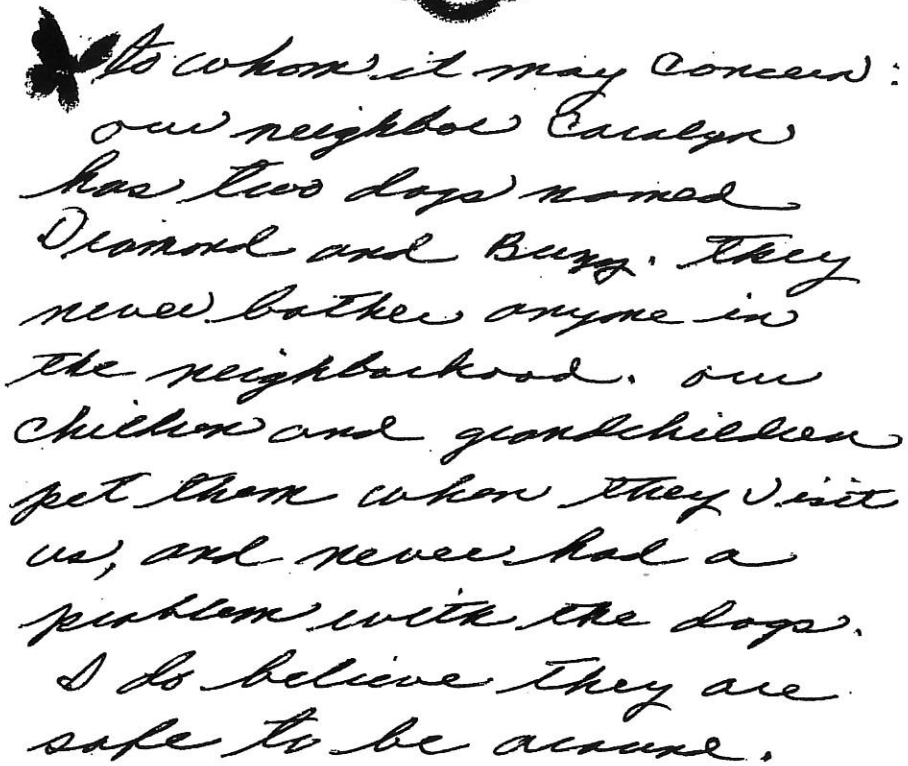 to whom it may Concern:
our neighbor Caralyn
has two dogs named
Diamond and Buzzy. They
never bother anyone in
the neighborhood. our
children and grandchildren
pet them when they visit
us, and never had a
problem with the dogs.
I do believe they are
safe to be around.